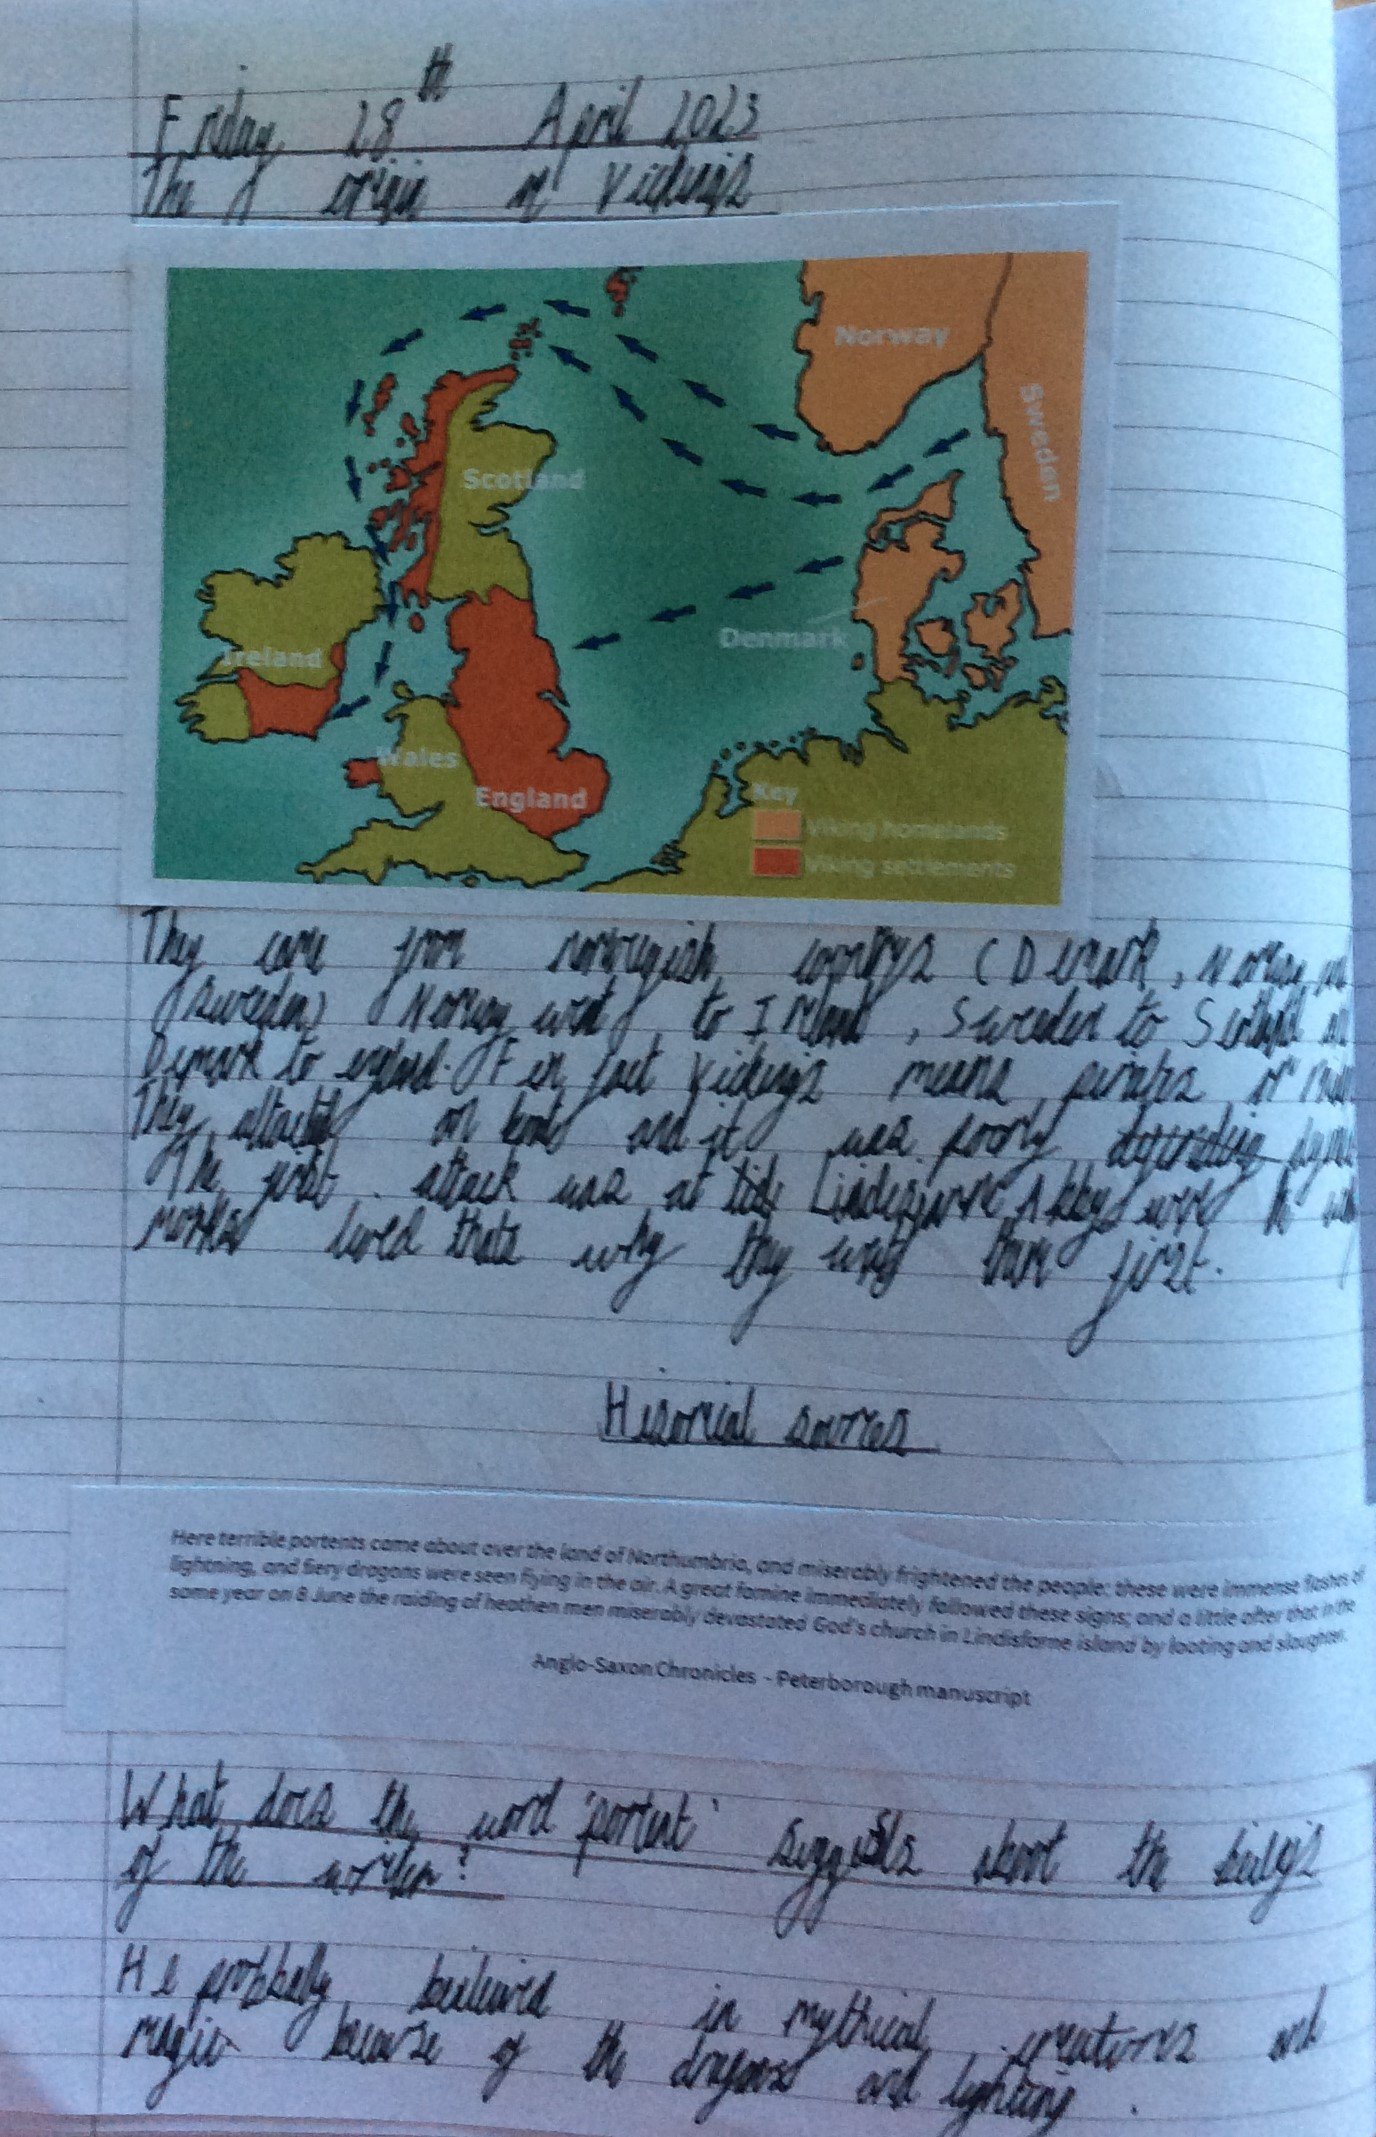 Friday 28th April 2023
The origin of Vickings
Norway
Sweden
Scotland
Denmark
Ireland
Wales
England
Key
Viking homelands
Viking settlements
They came from norwegish (Demark, Norway
Sweden) Norway went to Irland, Sweden to
Demark to england. in fact Vickings means pirates or
They on boats and it was poorly
The first attack was at Lindesfarne Abbey were
lived thats why they went there first.
Hisorical sources
Here terrible portents came about over the land of Northumbria, and miserably frightened the people: these were immense flashes of
lightning, and fiery dragons were seen flying in the air. A great famine immediately followed these signs; and a little after that in the
same year on 8 June the raiding of heathen men miserably devastated God's church in Lindisfarne island by looting and slaughter.
Anglo-Saxon Chronicles - Peterborough manuscript
What does the word 'portent' about the
of the writer?
He in mythical creatures and
magic because of the dragons and lighting.